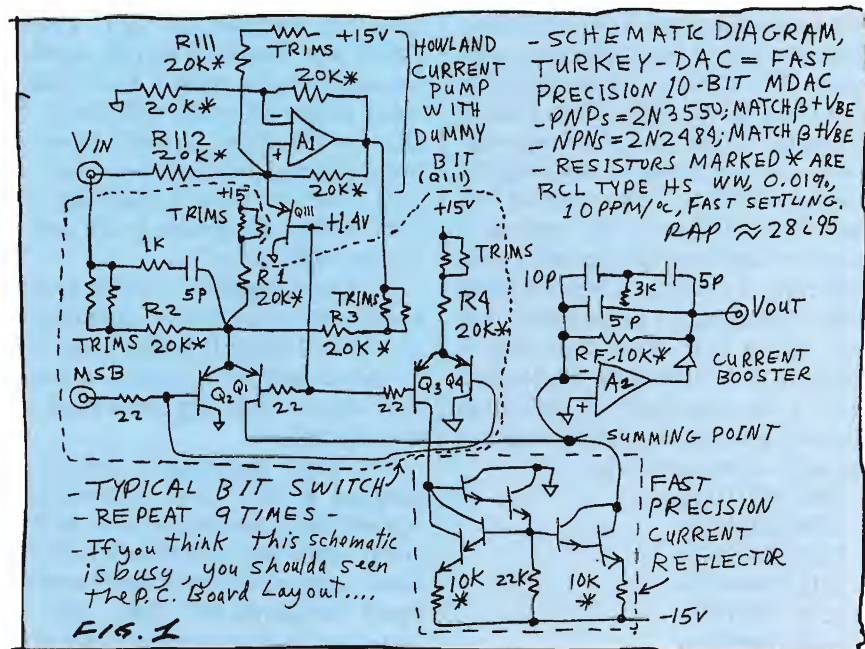 R111
20K*
TRIMS
+15V
20K*
20K*
A1
-
+
VIN
R112
20K*
20K*
HOWLAND
CURRENT
PUMP
WITH
DUMMY
BIT
(Q111)
- SCHEMATIC DIAGRAM,
TURKEY-DAC = FAST
PRECISION 10-BIT MDAC
- PNPs=2N3550; MATCH β+VBE
- NPNs=2N2484; MATCH β+VBE
- RESISTORS MARKED * ARE
RCL TYPE HS WW, 0.01%,
10PPM/°C, FAST SETTLING.
RAP ≈ 28i95
+15
TRIMS
Q111
+1.4V
+15V
TRIMS
1K
5P
R1
20K*
R2
20K*
TRIMS
TRIMS
R3
20K*
R4
20K*
10P
5P
3K
5P
VOUT
RF-10K*
CURRENT
BOOSTER
A2
-
+
MSB
22
Q2
Q1
22
22
Q3
Q4
SUMMING POINT
- TYPICAL BIT SWITCH
- REPEAT 9 TIMES -
- If you think this schematic
is busy, you shoulda seen
the P.C. Board Layout....
FAST
PRECISION
CURRENT
REFLECTOR
10K
*
22K
10K
*
-15V
FIG. 1